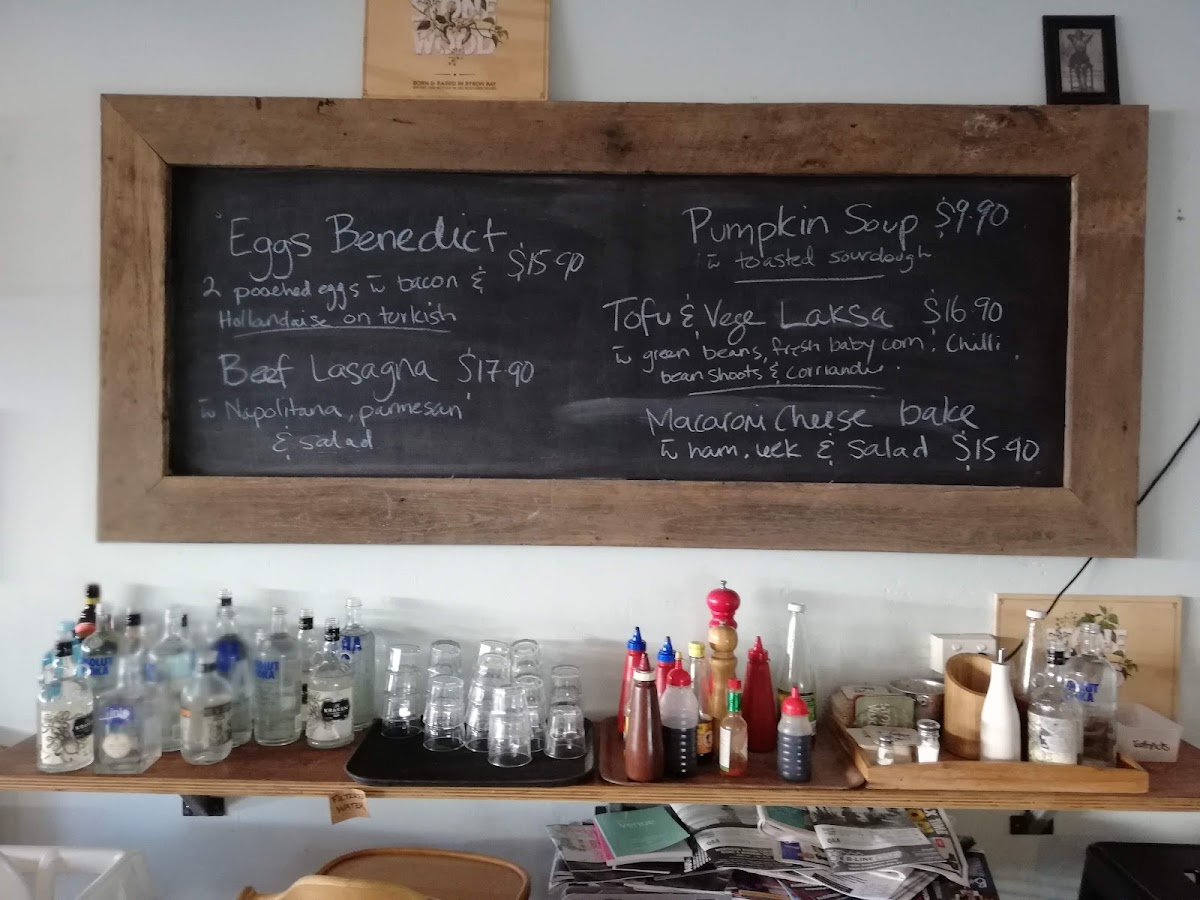 STONE
WOOD
BORN & RAISED IN BYRON BAY
Eggs Benedict
$15.90
2 pooched eggs w̄ bacon &
Hollandaise on turkish
Beef Lasagna $17.90
w̄ Napolitana, parmesan
& salad
Pumpkin Soup $9.90
w̄ toasted sourdough
Tofu & Vege Laksa $16.90
w̄ green beans, fresh baby corn, Chilli,
bean shoots & corriander.
Macaroni Cheese bake
w̄ ham, leek & Salad $15.90
KRAKEN
FILTERED
WATER
Venue